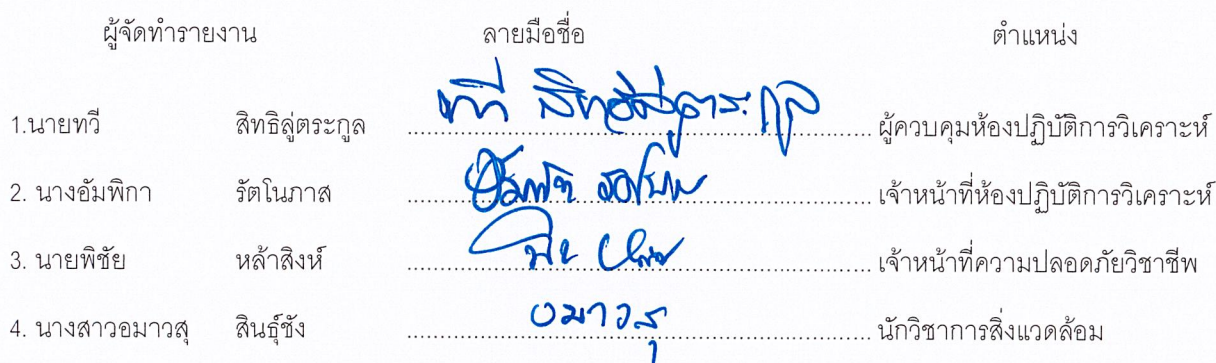 ผู้จัดทำรายงาน ลายมือชื่อ ตำแหน่ง
1.นายทวี สิทธิลู่ตระกูล ทวี สิทธิลู่ตระกูล ผู้ควบคุมห้องปฏิบัติการวิเคราะห์
2. นางอัมพิกา รัตโนภาส ........ เจ้าหน้าที่ห้องปฏิบัติการวิเคราะห์
3. นายพิชัย หล้าสิงห์ ........ เจ้าหน้าที่ความปลอดภัยวิชาชีพ
4. นางสาวอมาวสุ สินธุ์ชัง อมาวสุ นักวิชาการสิ่งแวดล้อม